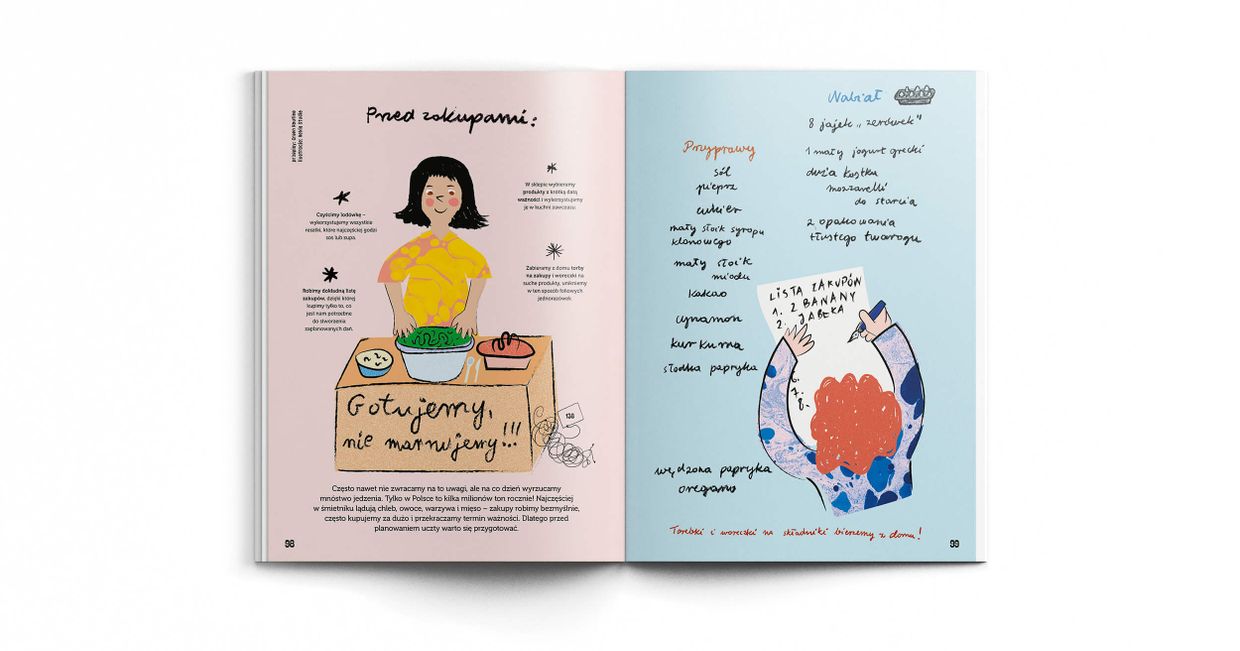 Przed zakupami:
W sklepie wybieramy
produkty z krótką datą
ważności i wykorzystujemy
je w kuchni zawczasu.
Czyścimy lodówkę –
wykorzystujemy wszystkie
resztki, które najczęściej godzi
sos lub zupa.
Zabieramy z domu torby
na zakupy i woreczki na
suche produkty, unikniemy
w ten sposób foliowych
jednorazówek.
Robimy dokładną listę
zakupów, dzięki której
kupimy tylko to, co
jest nam potrzebne
do stworzenia
zaplanowanych dań.
Gotujemy,
nie marnujemy!!!
130
Często nawet nie zwracamy na to uwagi, ale na co dzień wyrzucamy
mnóstwo jedzenia. Tylko w Polsce to kilka milionów ton rocznie! Najczęściej
w śmietniku lądują chleb, owoce, warzywa i mięso – zakupy robimy bezmyślnie,
często kupujemy za dużo i przekraczamy termin ważności. Dlatego przed
planowaniem uczty warto się przygotować.
98
Przyprawy
sól
pieprz
cukier
mały słoik syropu
klonowego
mały słoik
miodu
kakao
cynamon
kurkuma
słodka papryka
wędzona papryka
oregano
Nabiał
8 jajek „zerówek"
1 mały jogurt grecki
duża kostka
mozzarelli
do starcia
2 opakowania
tłustego twarogu
LISTA ZAKUPÓW
1. 2 BANANY
2. JABŁKA
6.
7.
8.
Torebki i woreczki na składniki bierzemy z domu!
99